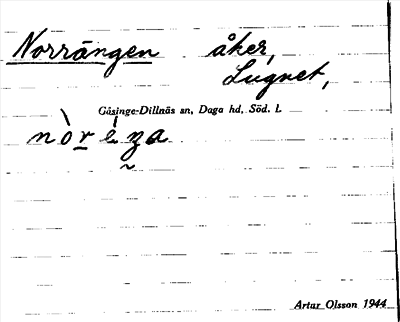 Norrängen åker,
Lugnet,
Gåsinge-Dillnäs sn, Daga hd, Söd. l.
nòr éza
Artur Olsson 1944